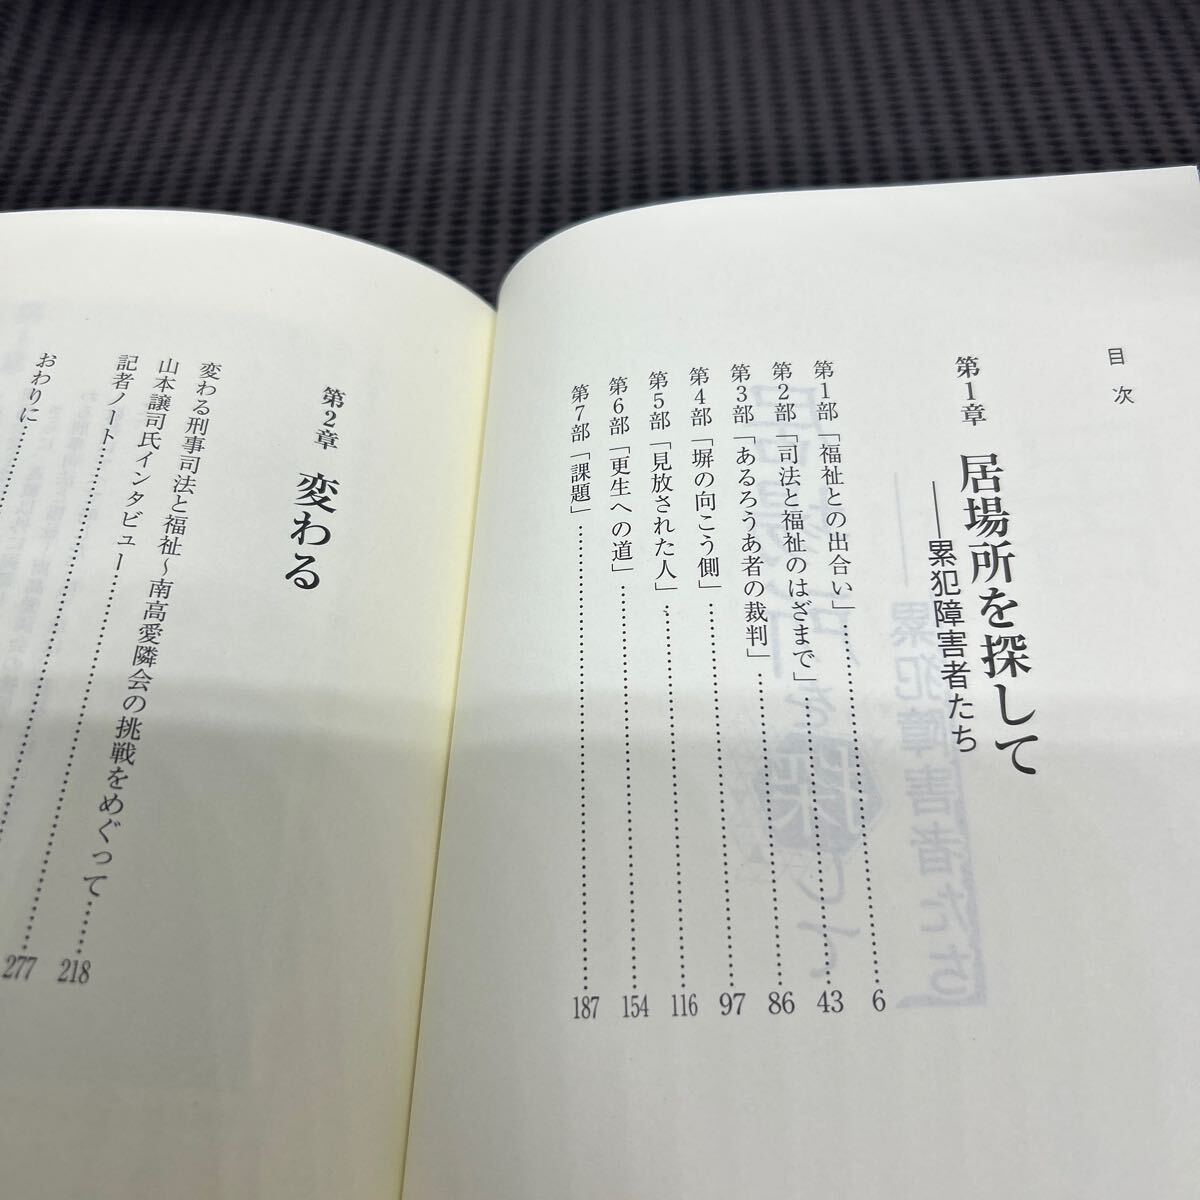 目次
第1章 居場所を探して
――累犯障害者たち
第1部「福祉との出合い」…………6
第2部「司法と福祉のはざまで」…………43
第3部「あるろうあ者の裁判」…………86
第4部「塀の向こう側」…………97
第5部「見放された人」…………116
第6部「更生への道」…………154
第7部「課題」…………187
第2章 変わる
変わる刑事司法と福祉～南高愛隣会の挑戦をめぐって……218
山本譲司氏インタビュー…………277
記者ノート…………
おわりに…………